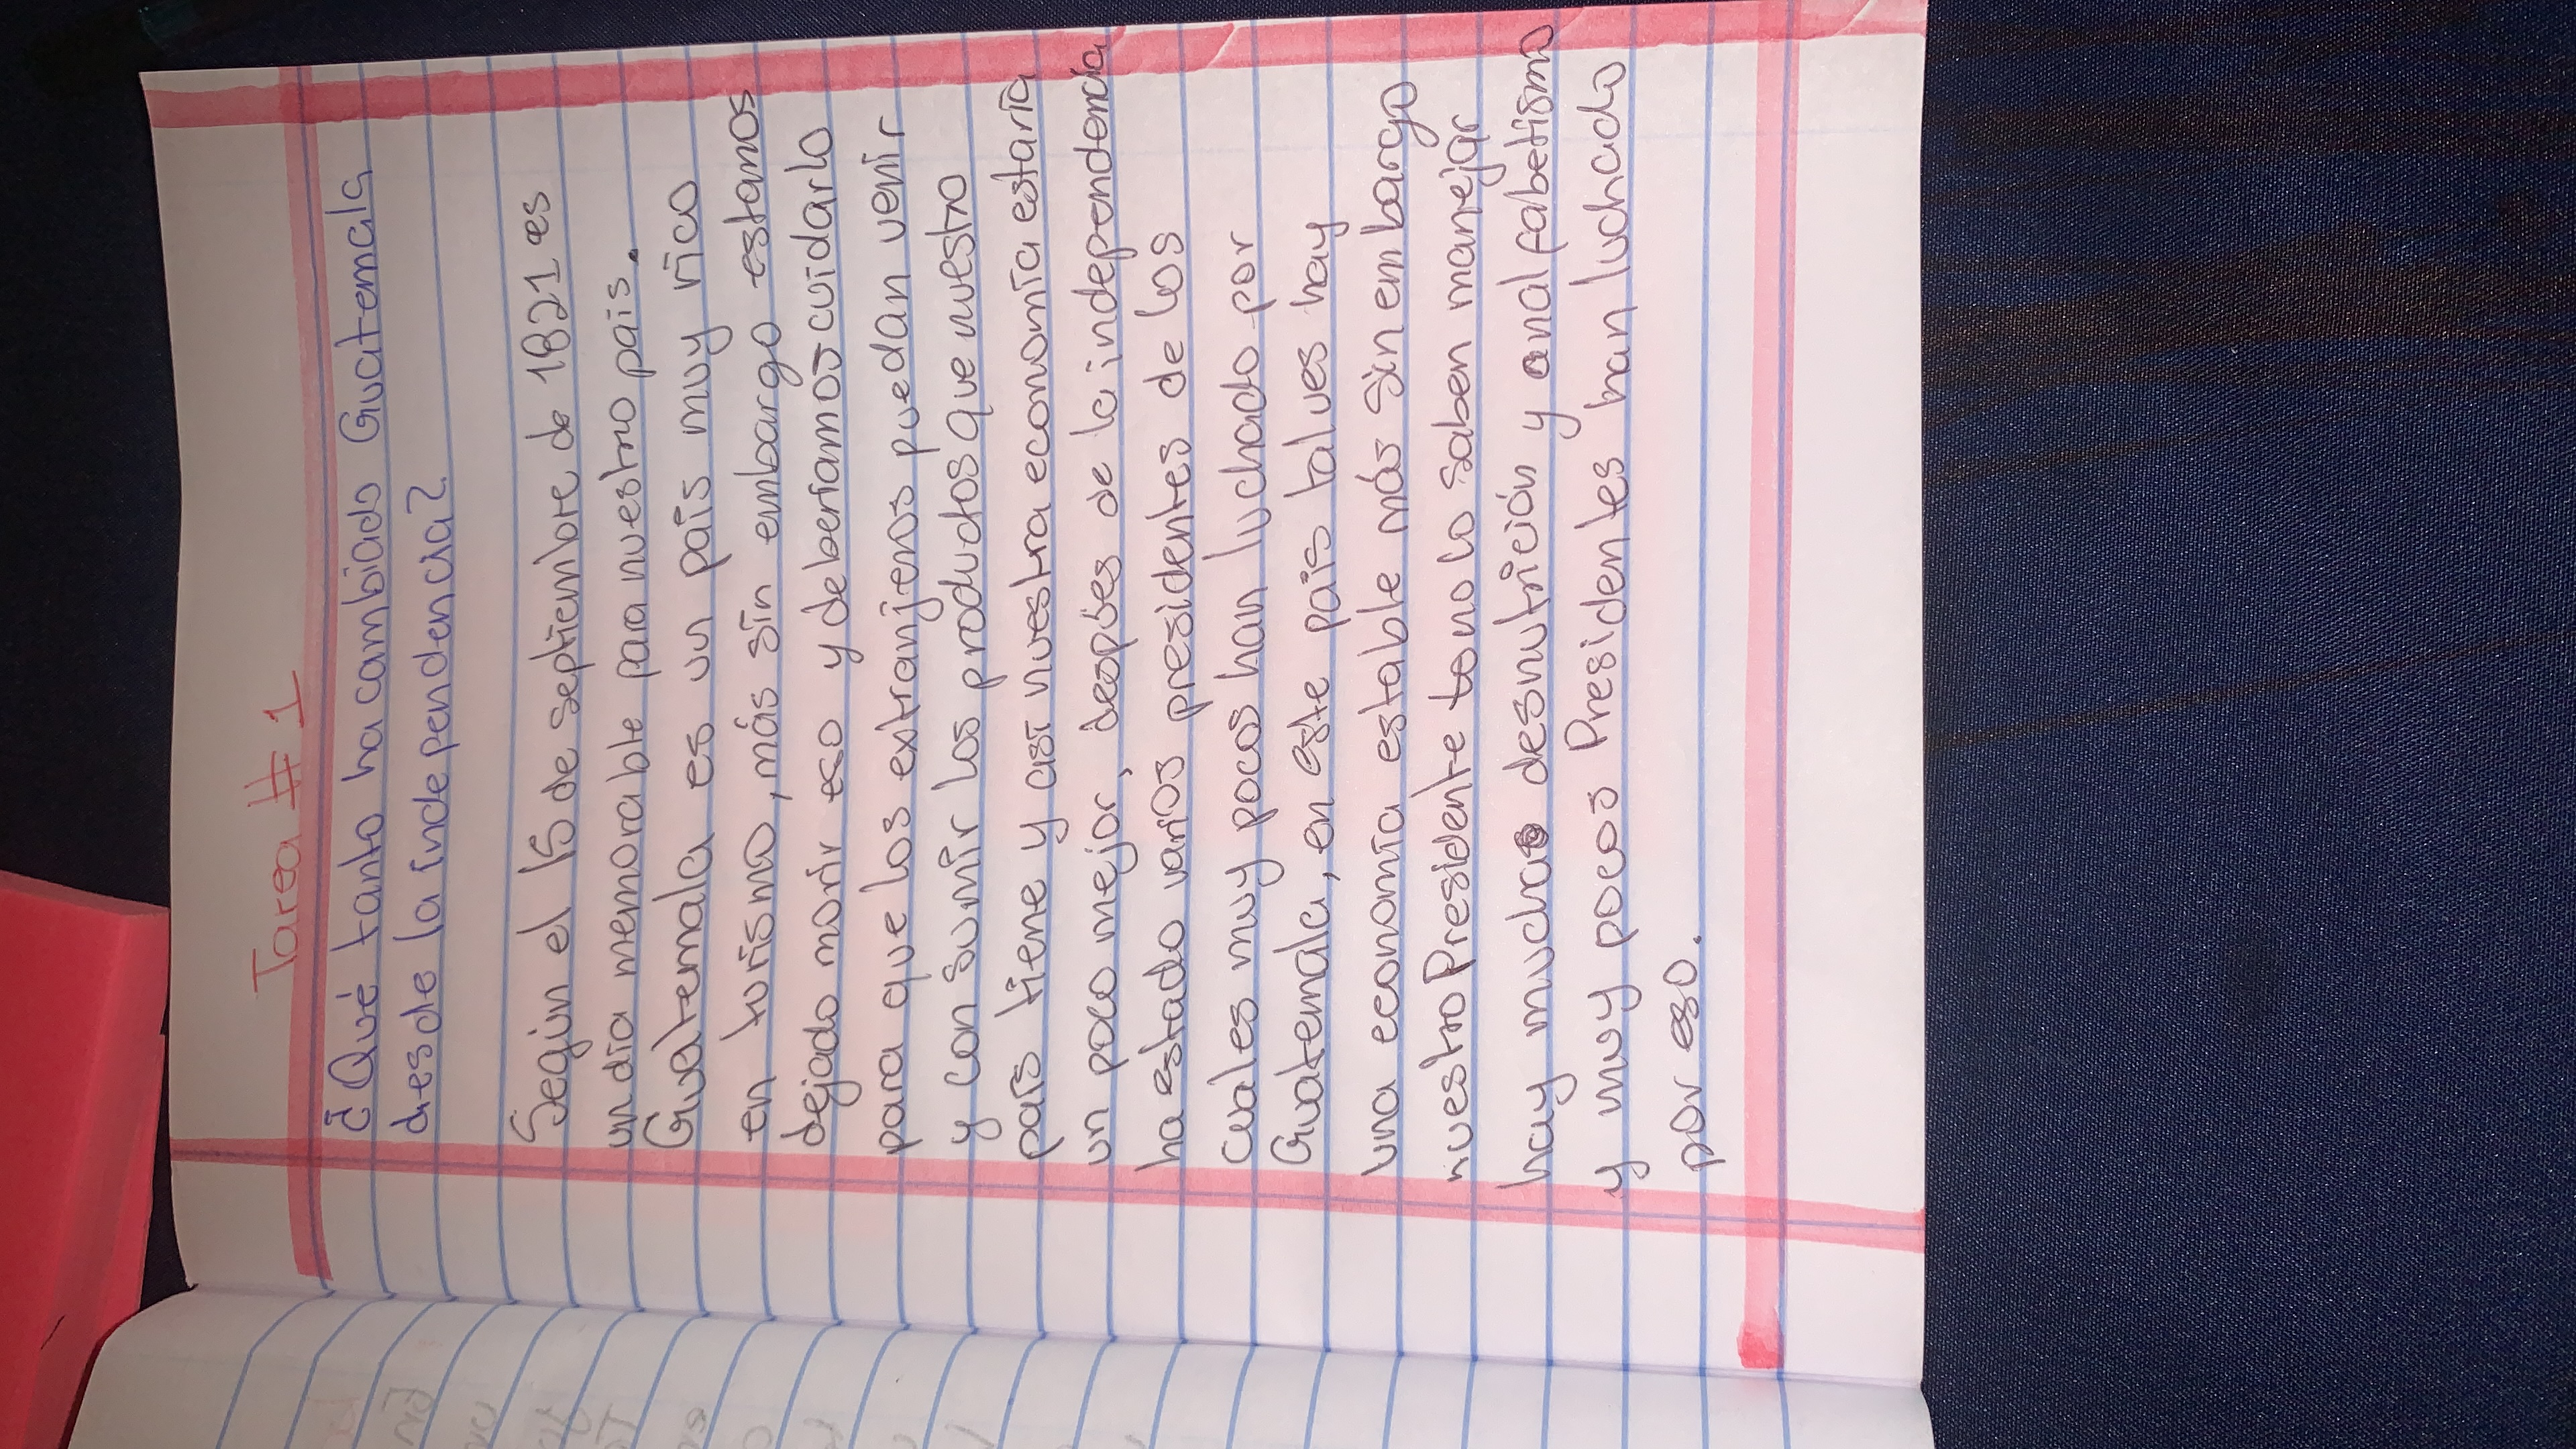 Tarea # 1
¿Qué tanto ha cambiado Guatemala
desde la independencia?
Según el 15 de septiembre de 1821 es
un día memorable para nuestro país.
Guatemala es un país muy rico
en turismo, más sin embargo estamos
dejado morir eso y deberiamos cuidarlo
para que los extranjeros puedan venir
y consumir los productos que nuestro
país tiene y así nuestra economía estaría
un poco mejor, despúes de la independencia
ha estado varios presidentes de los
cuales muy pocos han luchado por
Guatemala, en este país talves hay
una economía estable más sin embargo
nuestro Presidente no lo saben manejar
hay mucha desnutrición y analfabetismo
y muy pocos Presidentes han luchado
por eso.